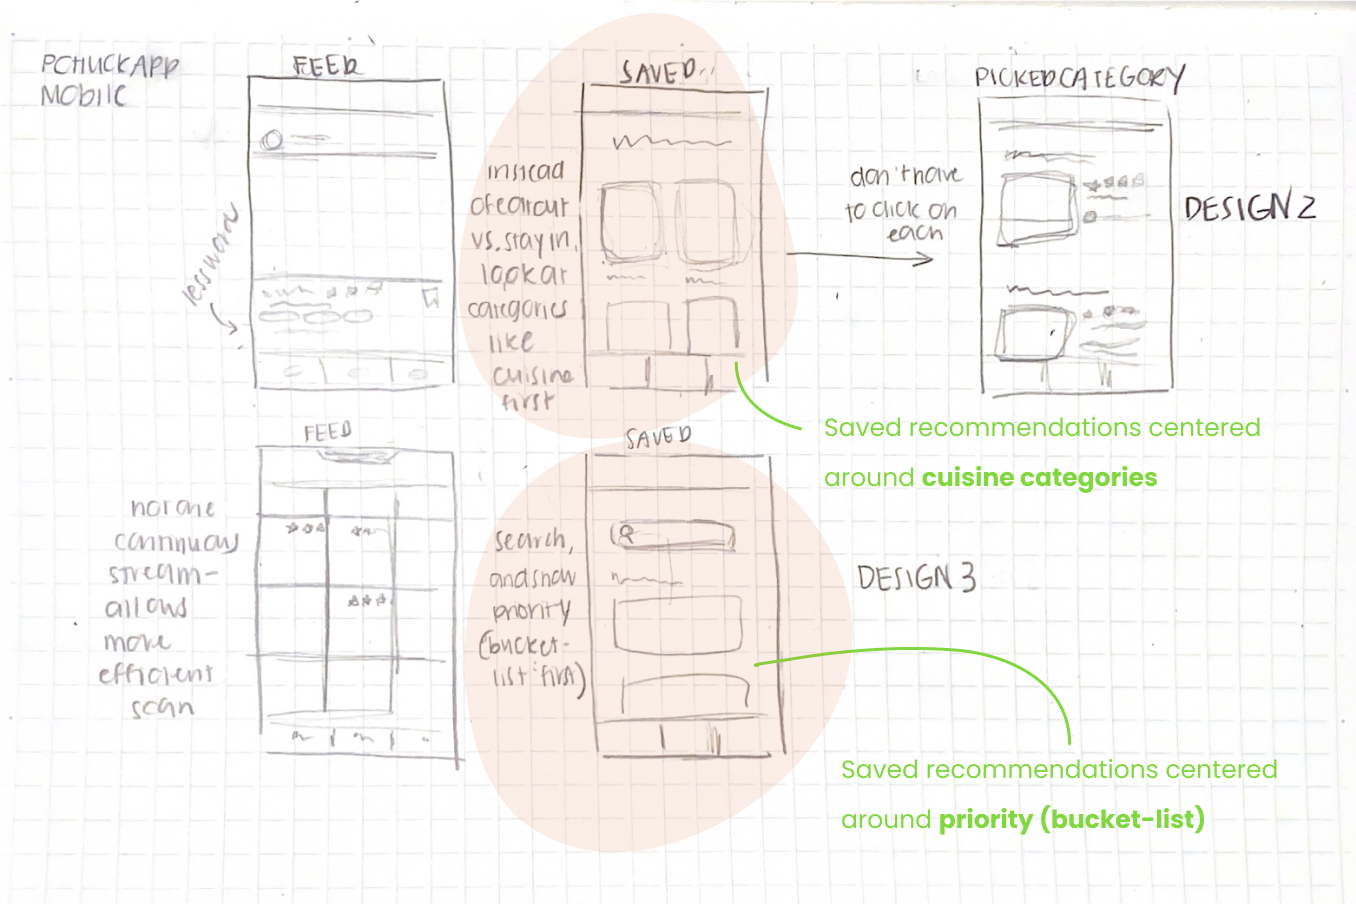 PCHUCK APP
MOBILE
FEED
SAVED
PICKED CATEGORY
instead
of eat out
vs. stay in,
look at
categories
like
cuisine
first
don't have
to click on
each
DESIGN 2
less words
Saved recommendations centered
around cuisine categories
FEED
SAVED
not one
continuous
stream-
allows
more
efficient
scan
search,
and show
priority
(bucket-
list first)
DESIGN 3
Saved recommendations centered
around priority (bucket-list)